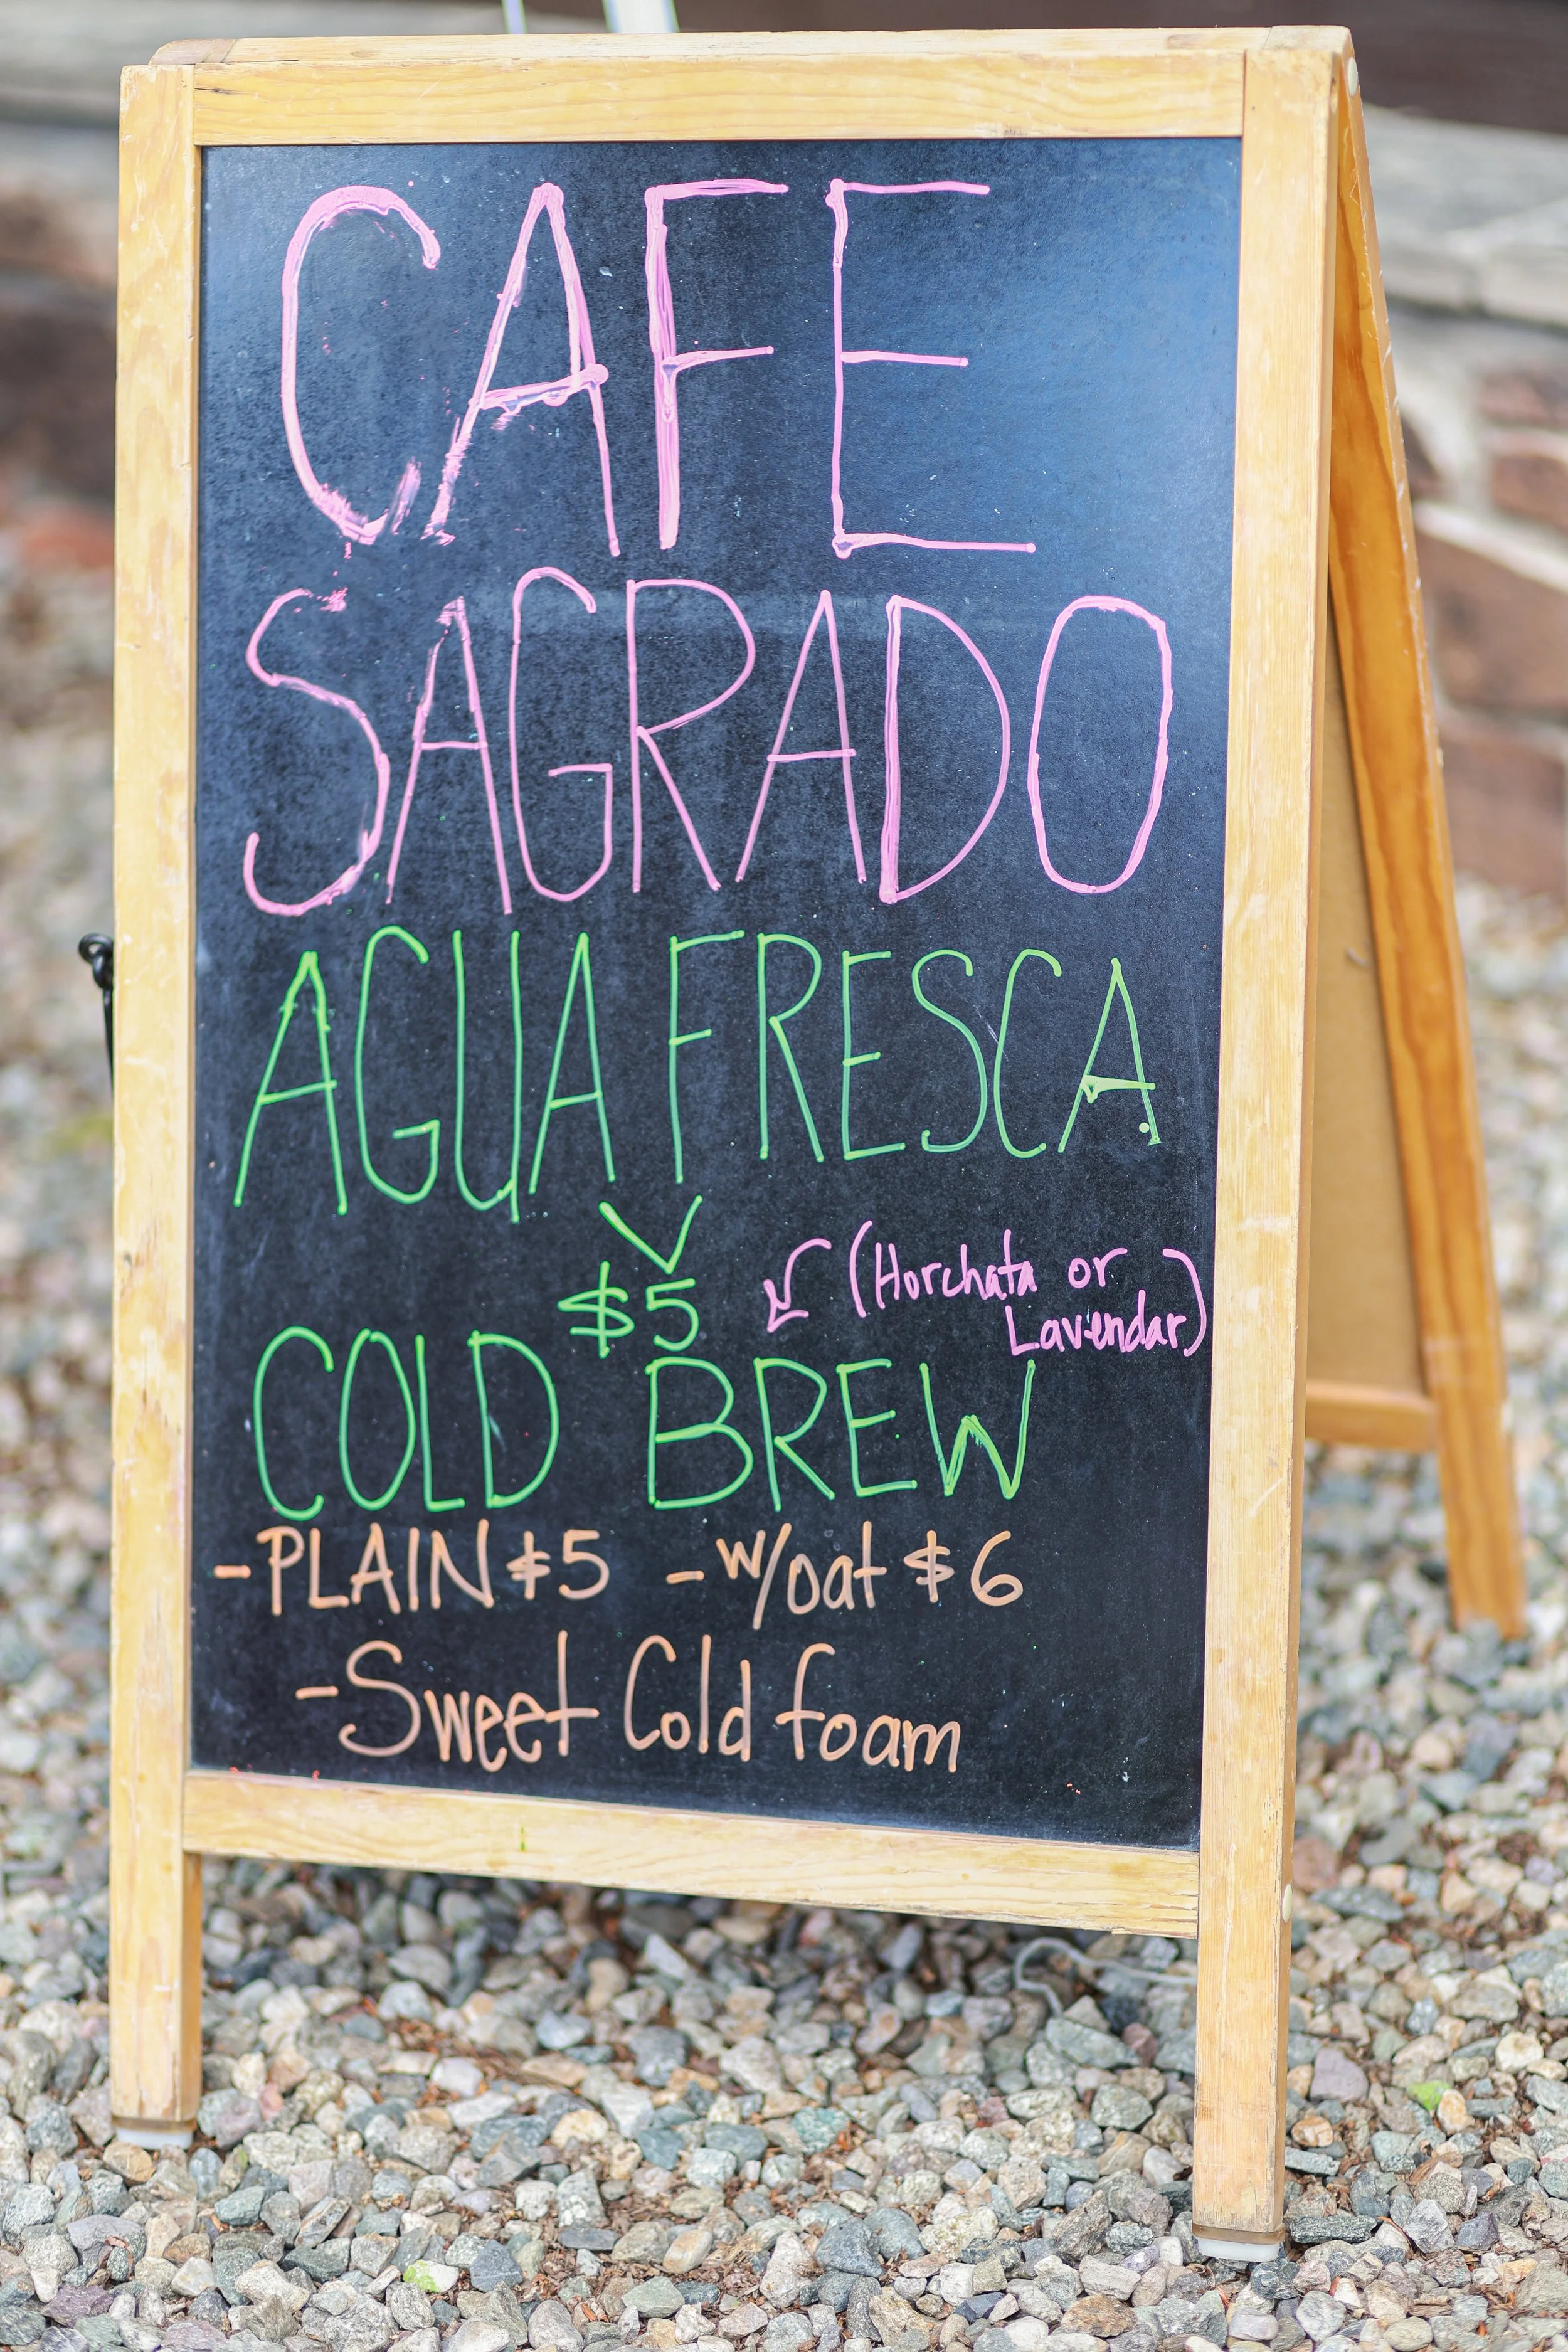 CAFE
SAGRADO
AGUA FRESCA
$5 (Horchata or
Lavendar)
COLD BREW
-PLAIN $5 -w/oat $6
-Sweet Cold foam